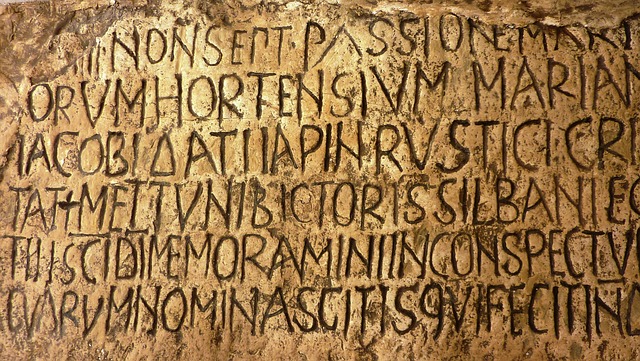 III NON SEPT PASSIONE MARTVR
ORVM HORTENSIVM MARIAN
IACOBI DATI IAPIN RVSTICI CRI
TATI METTVNI BICTORIS SILBANI E
TII SCI DI MEMORAMINI IN CONSPECTV
QVORVM NOMINA SCIT IS QVI FECIT IN